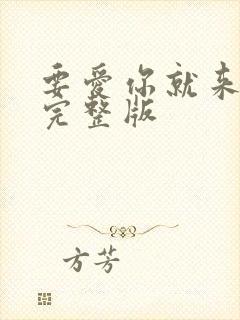 要爱你就来
完整版
方芳